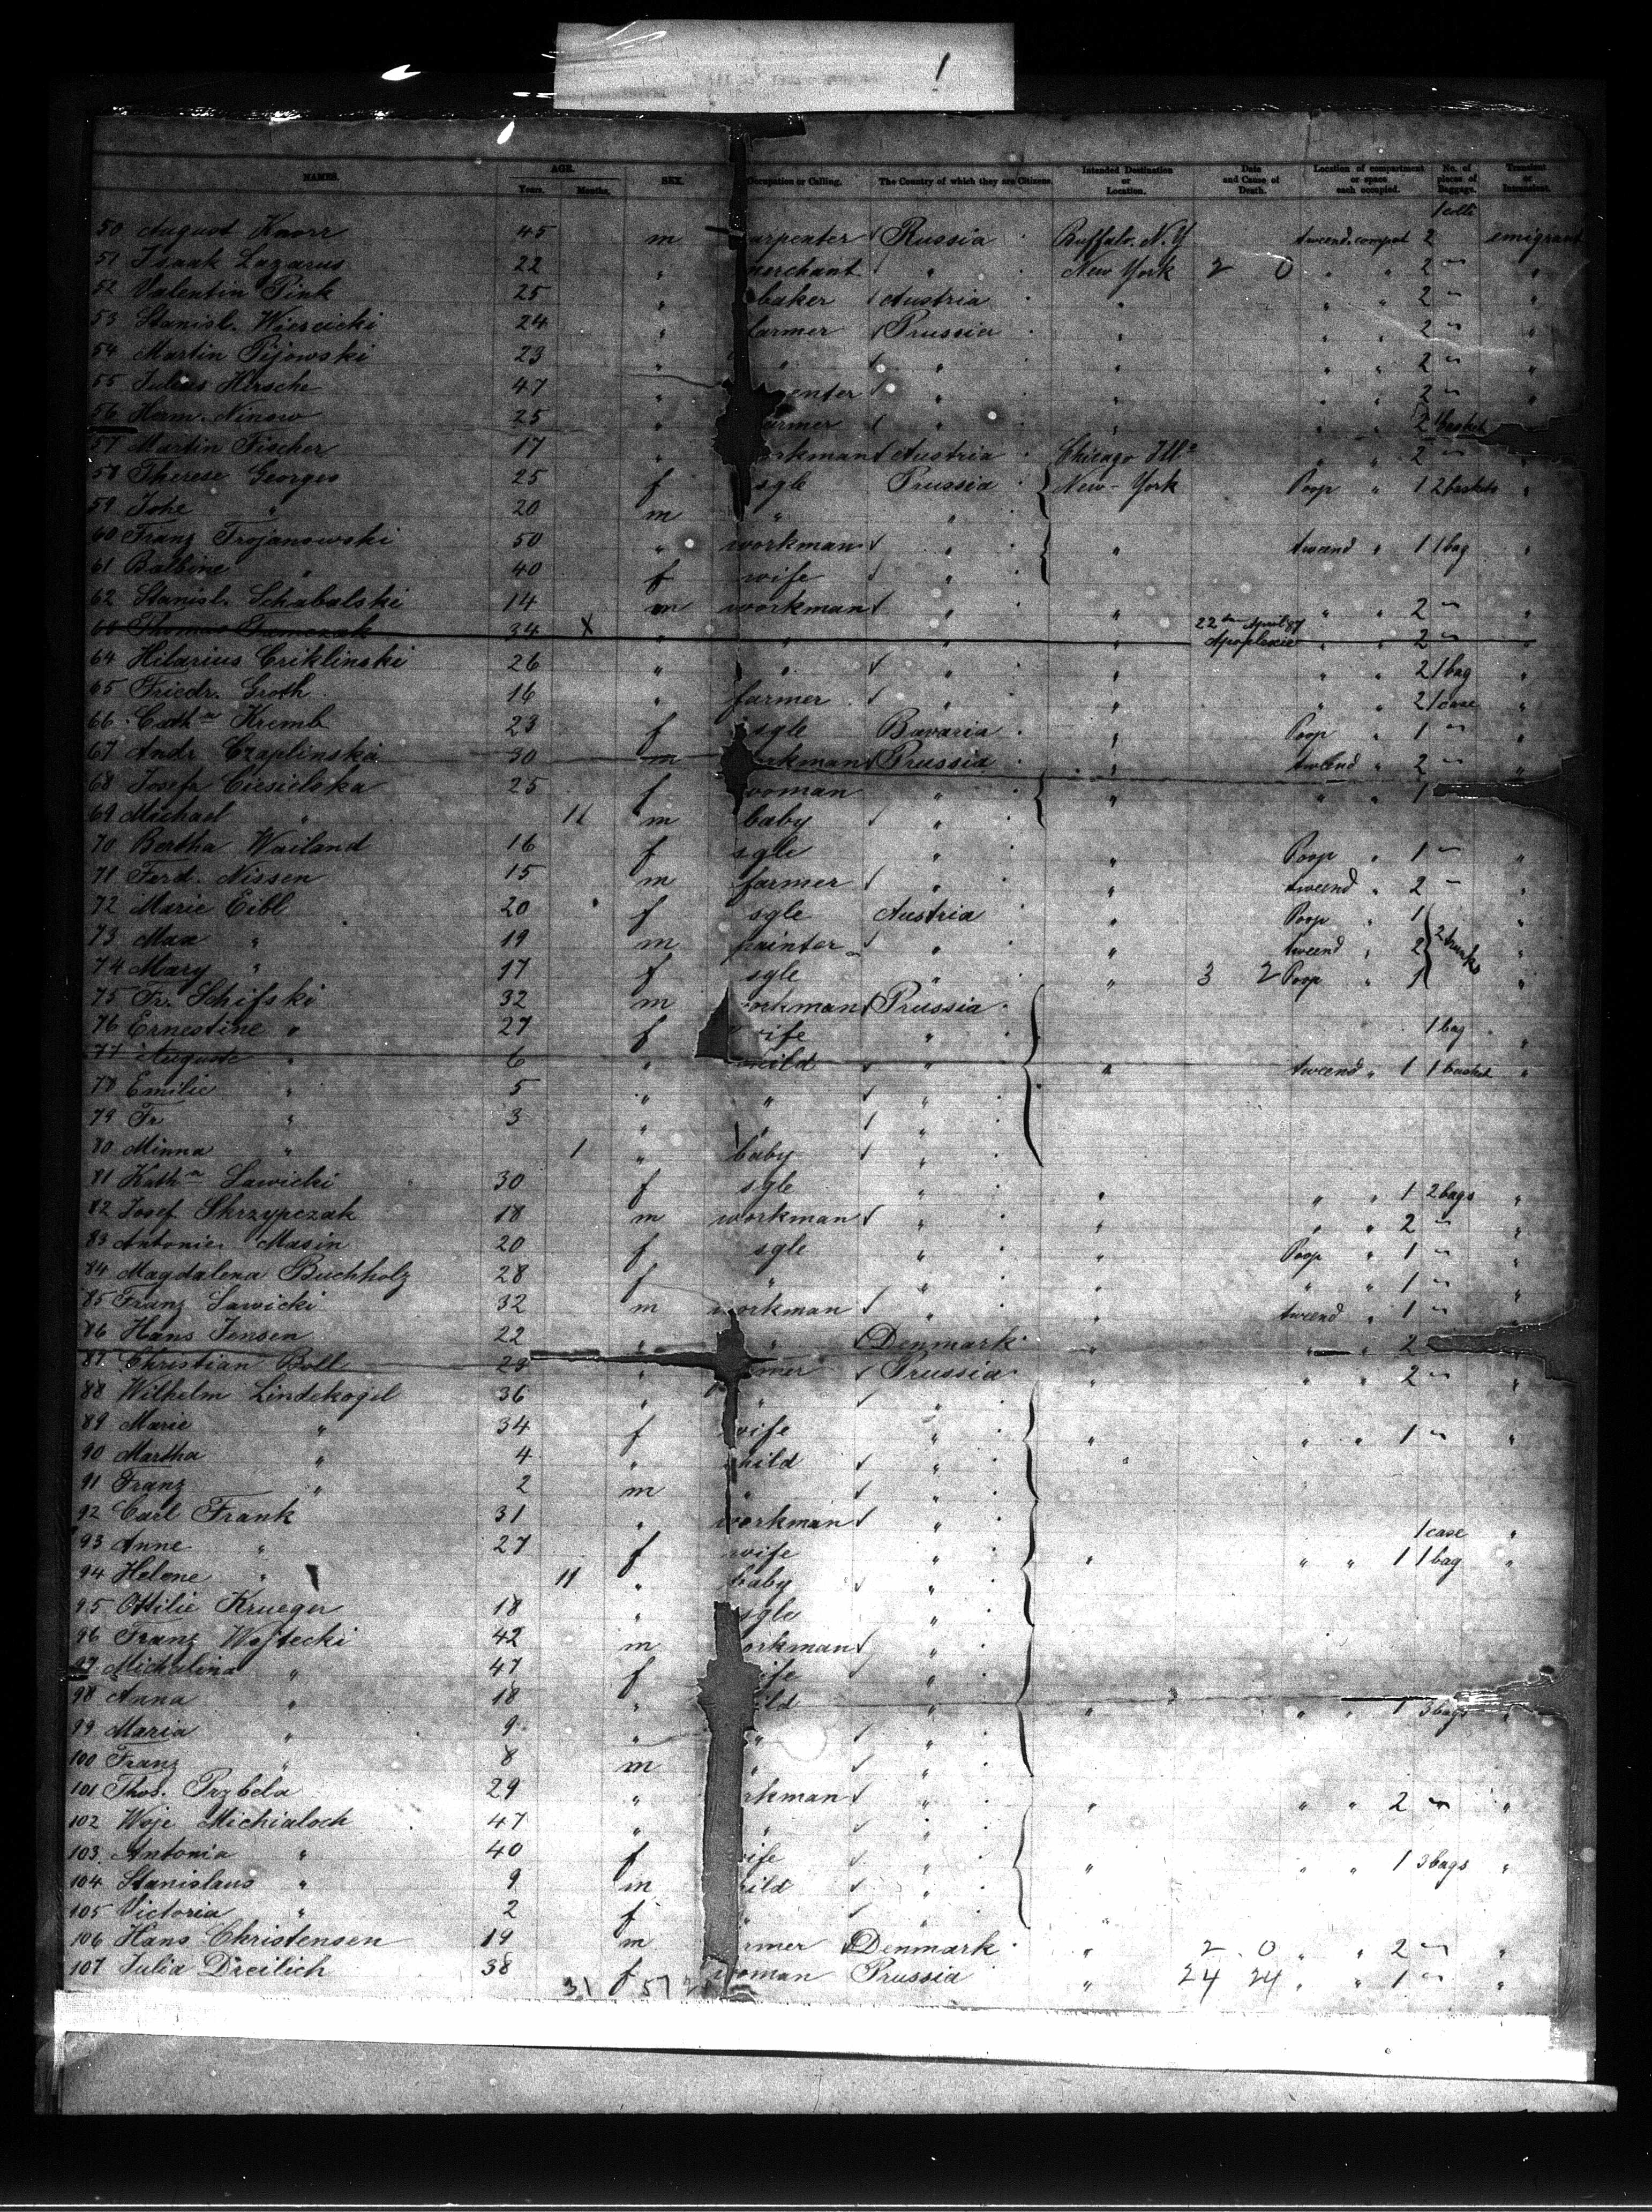 1
NAMES. AGE. SEX. Occupation or Calling. The Country of which they are Citizens. Intended Destination or Location. Date and Cause of Death. Location of compartment or space each occupied. No. of pieces of Baggage. Transient or Inтransient.
Years. Months.
50 August Knorr 45 m carpenter Russia Buffalo. N.Y tweend. compat 2 1 colli emigrant
51 Isaak Lazarus 22 " merchant " New York 2 0 " " 2 " "
52 Valentin Pink 25 " baker Austria " " " 2 " "
53 Stanisl. Wiescicki 24 " farmer Prussia " " " 2 " "
54 Martin Pijowski 23 " " " " " " 2 " "
55 Julius Hirsche 47 " enter " " " " 2 " "
56 Herm. Ninow 25 " farmer " " " " 2 1 basket
57 Martin Fischer 17 " orkman Austria Chicago Ills " " 2 " "
58 Therese Georges 25 f sgle Prussia New-York Poop " 1 2 baskets "
59 Johe " 20 m " "
60 Franz Trojanowski 50 " workman " " tweend " 1 1 bag "
61 Balbine " 40 f wife "
62 Stanisl. Schabalski 14 m workman " " " " 2 " "
63 Thomas 34 X " " " " 22ten April 87 Apoplexie " " 2 " "
64 Hilarius Criklinski 26 " " " " " " 2 1 bag "
65 Friedr. Groth 16 " farmer " " " " 2 1 case "
66 Cath. Kremb 23 f sgle Bavaria " Poop " 1 " "
67 Andr. Czaplinski 30 m orkman Prussia " tweend " 2 " "
68 Josefa Ciesielska 25 f woman " " " " 1
69 Michael " 11 m baby "
70 Bertha Wailand 16 f sgle " " Poop " 1 " "
71 Ferd. Nissen 15 m farmer " " tweend " 2 " "
72 Marie Eibl 20 f sgle Austria " Poop " 1 "
73 Max " 19 m painter " " tweend " 2 2 trunks "
74 Mary " 17 f sgle " " 3 2 Poop 1 "
75 Fr. Schifski 32 m orkman Prussia
76 Ernestine " 27 f wife " 1 bag "
77 Auguste " 6 " child " " tweend " 1 1 basket "
78 Emilie " 5 " " "
79 Fr " 3 " " "
80 Minna " 1 " baby "
81 Kath. Lawicki 30 f sgle " " " " 1 2 bags "
82 Josef Skrzypczak 18 m workman " " " " 2 " "
83 Antonie Masin 20 f sgle " " Poop " 1 " "
84 Magdalena Buchholz 28 f " " " " " 1 " "
85 Franz Lawicki 32 m workman " " tweend " 1 " "
86 Hans Jensen 22 " " Denmark " " " 2
87 Christian Boll 23 " mer Prussia " " " 2 " "
88 Wilhelm Lindekogel 36 " " "
89 Marie " 34 f wife " " " " 1 " "
90 Martha " 4 " child " "
91 Franz " 2 m " "
92 Carl Frank 31 " workman " 1 case "
93 Anne " 27 f wife " " " " 1 1 bag "
94 Helene " 11 " baby "
95 Ottilie Krueger 18 " sgle "
96 Franz Wojtecki 42 m orkman "
97 Michalina " 47 f ife "
98 Anna " 18 " ild " " " " 1 3 bags "
99 Maria " 9 " " "
100 Franz " 8 m " "
101 Thos. Przbela 29 " rkman " " " " 2 " "
102 Woje Michialoch 47 " " "
103 Antonia " 40 f ife " " " " 1 3 bags "
104 Stanislaus " 9 m ild "
105 Victoria " 2 f " " "
106 Hans Christensen 19 m rmer Denmark " 2 0 " " 2 " "
107 Julia Dreilich 38 f woman Prussia " 24 24 " " 1 " "
31 51